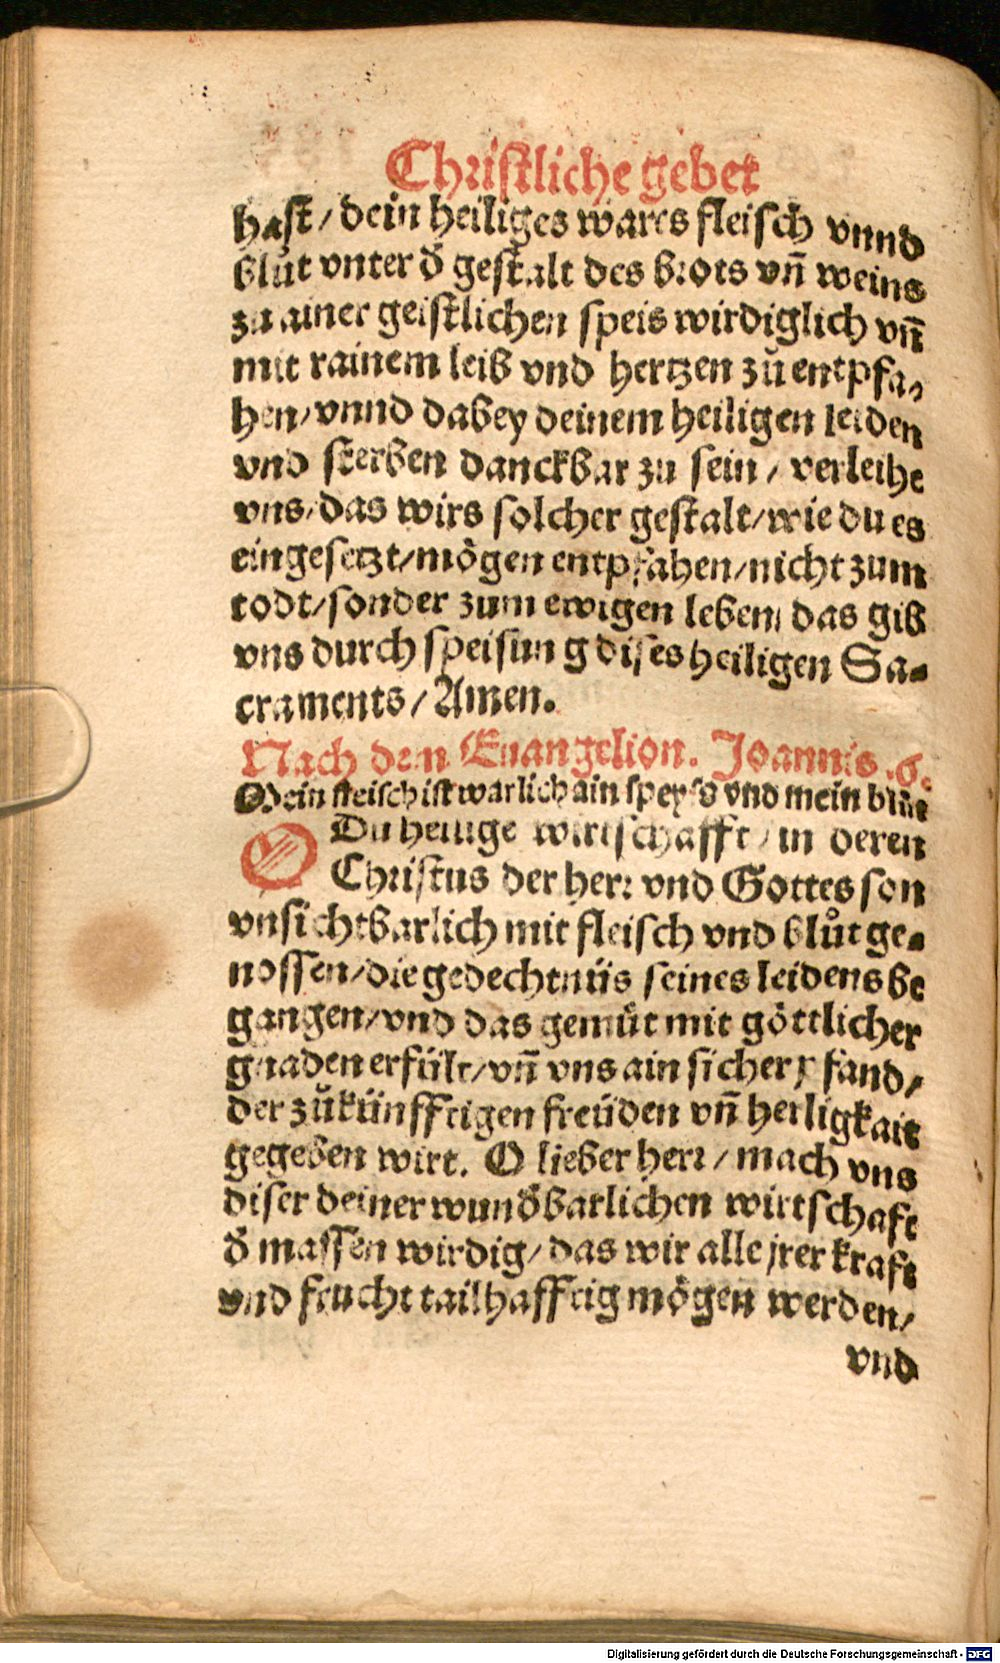 Christliche gebet
hast / dein heiliges wares fleisch vnnd
blůt vnter d̄ gestalt des brots vñ weins
zu ainer geistlichen speis wirdiglich vñ
mit rainem leib vnd hertzen zů entpfa⸗
hen / vnnd dabey deinem heiligen leiden
vnd sterben danckbar zu sein / verleihe
vns / das wirs solcher gestalt / wie du es
eingesetzt / mögen entpfahen / nicht zum
todt / sonder zum ewigen leben / das gib
vns durch speisung dises heiligen Sa⸗
craments / Amen.
Nach dem Euangelion. Joannis .6.
Mein fleisch ist warlich ain speyss vnd mein blůt
O Du heilige wirtschafft / in deren
Christus der herr vnd Gottes son
vnsichtbarlich mit fleisch vnd blůt ge⸗
nossen / die gedechtnüs seines leidens be
gangen / vnd das gemüt mit göttlicher
gnaden erfült / vñ vns ain sicher pfand /
der zůkünfftigen freüden vñ herligkait
gegeben wirt. O lieber herr / mach vns
diser deiner wund̄barlichen wirtschaft
d̄ massen wirdig / das wir alle jrer kraft
vnd frucht tailhafftig mögen werden /
vnd
Digitalisierung gefördert durch die Deutsche Forschungsgemeinschaft - DFG